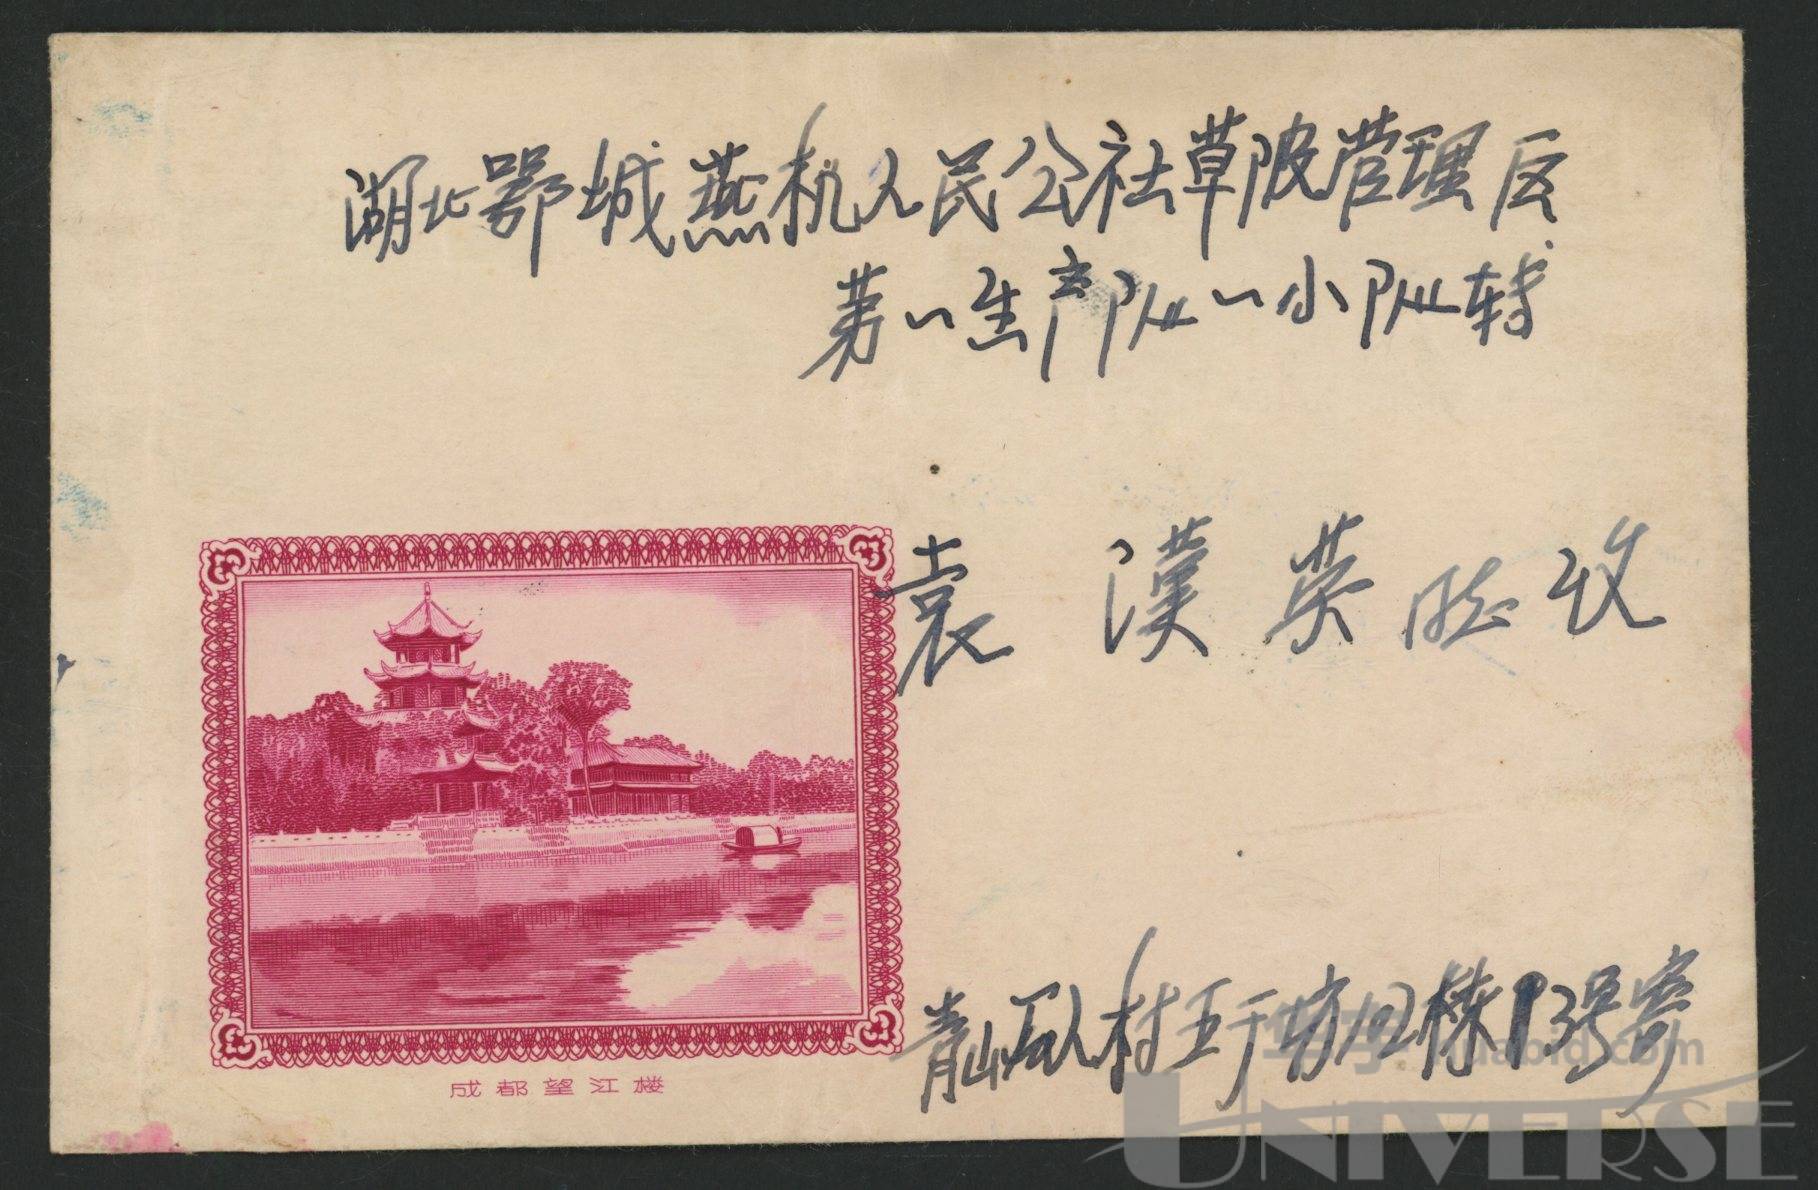 湖北鄂城燕机人民公社草陂管理区
第一生产队一小队转
袁漢英 收
成都望江楼
青山 人村五 坊四栋13号寄
huabid.com
UNIVERSE